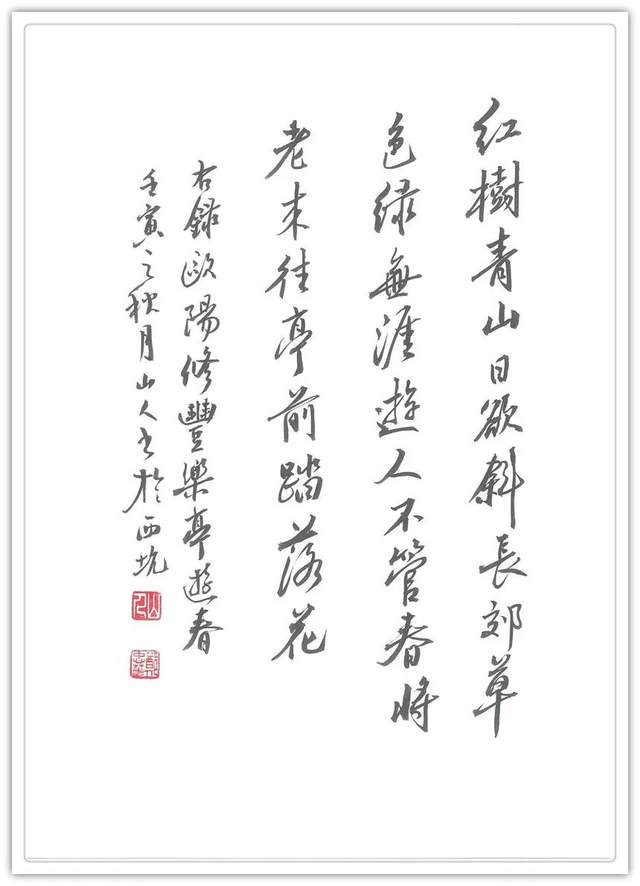 红樹青山日欲斜長郊草
色緑無涯遊人不管春將
老来往亭前踏落花
右録歐陽修豐樂亭遊春
壬寅之秋月山人书於西坑
山人